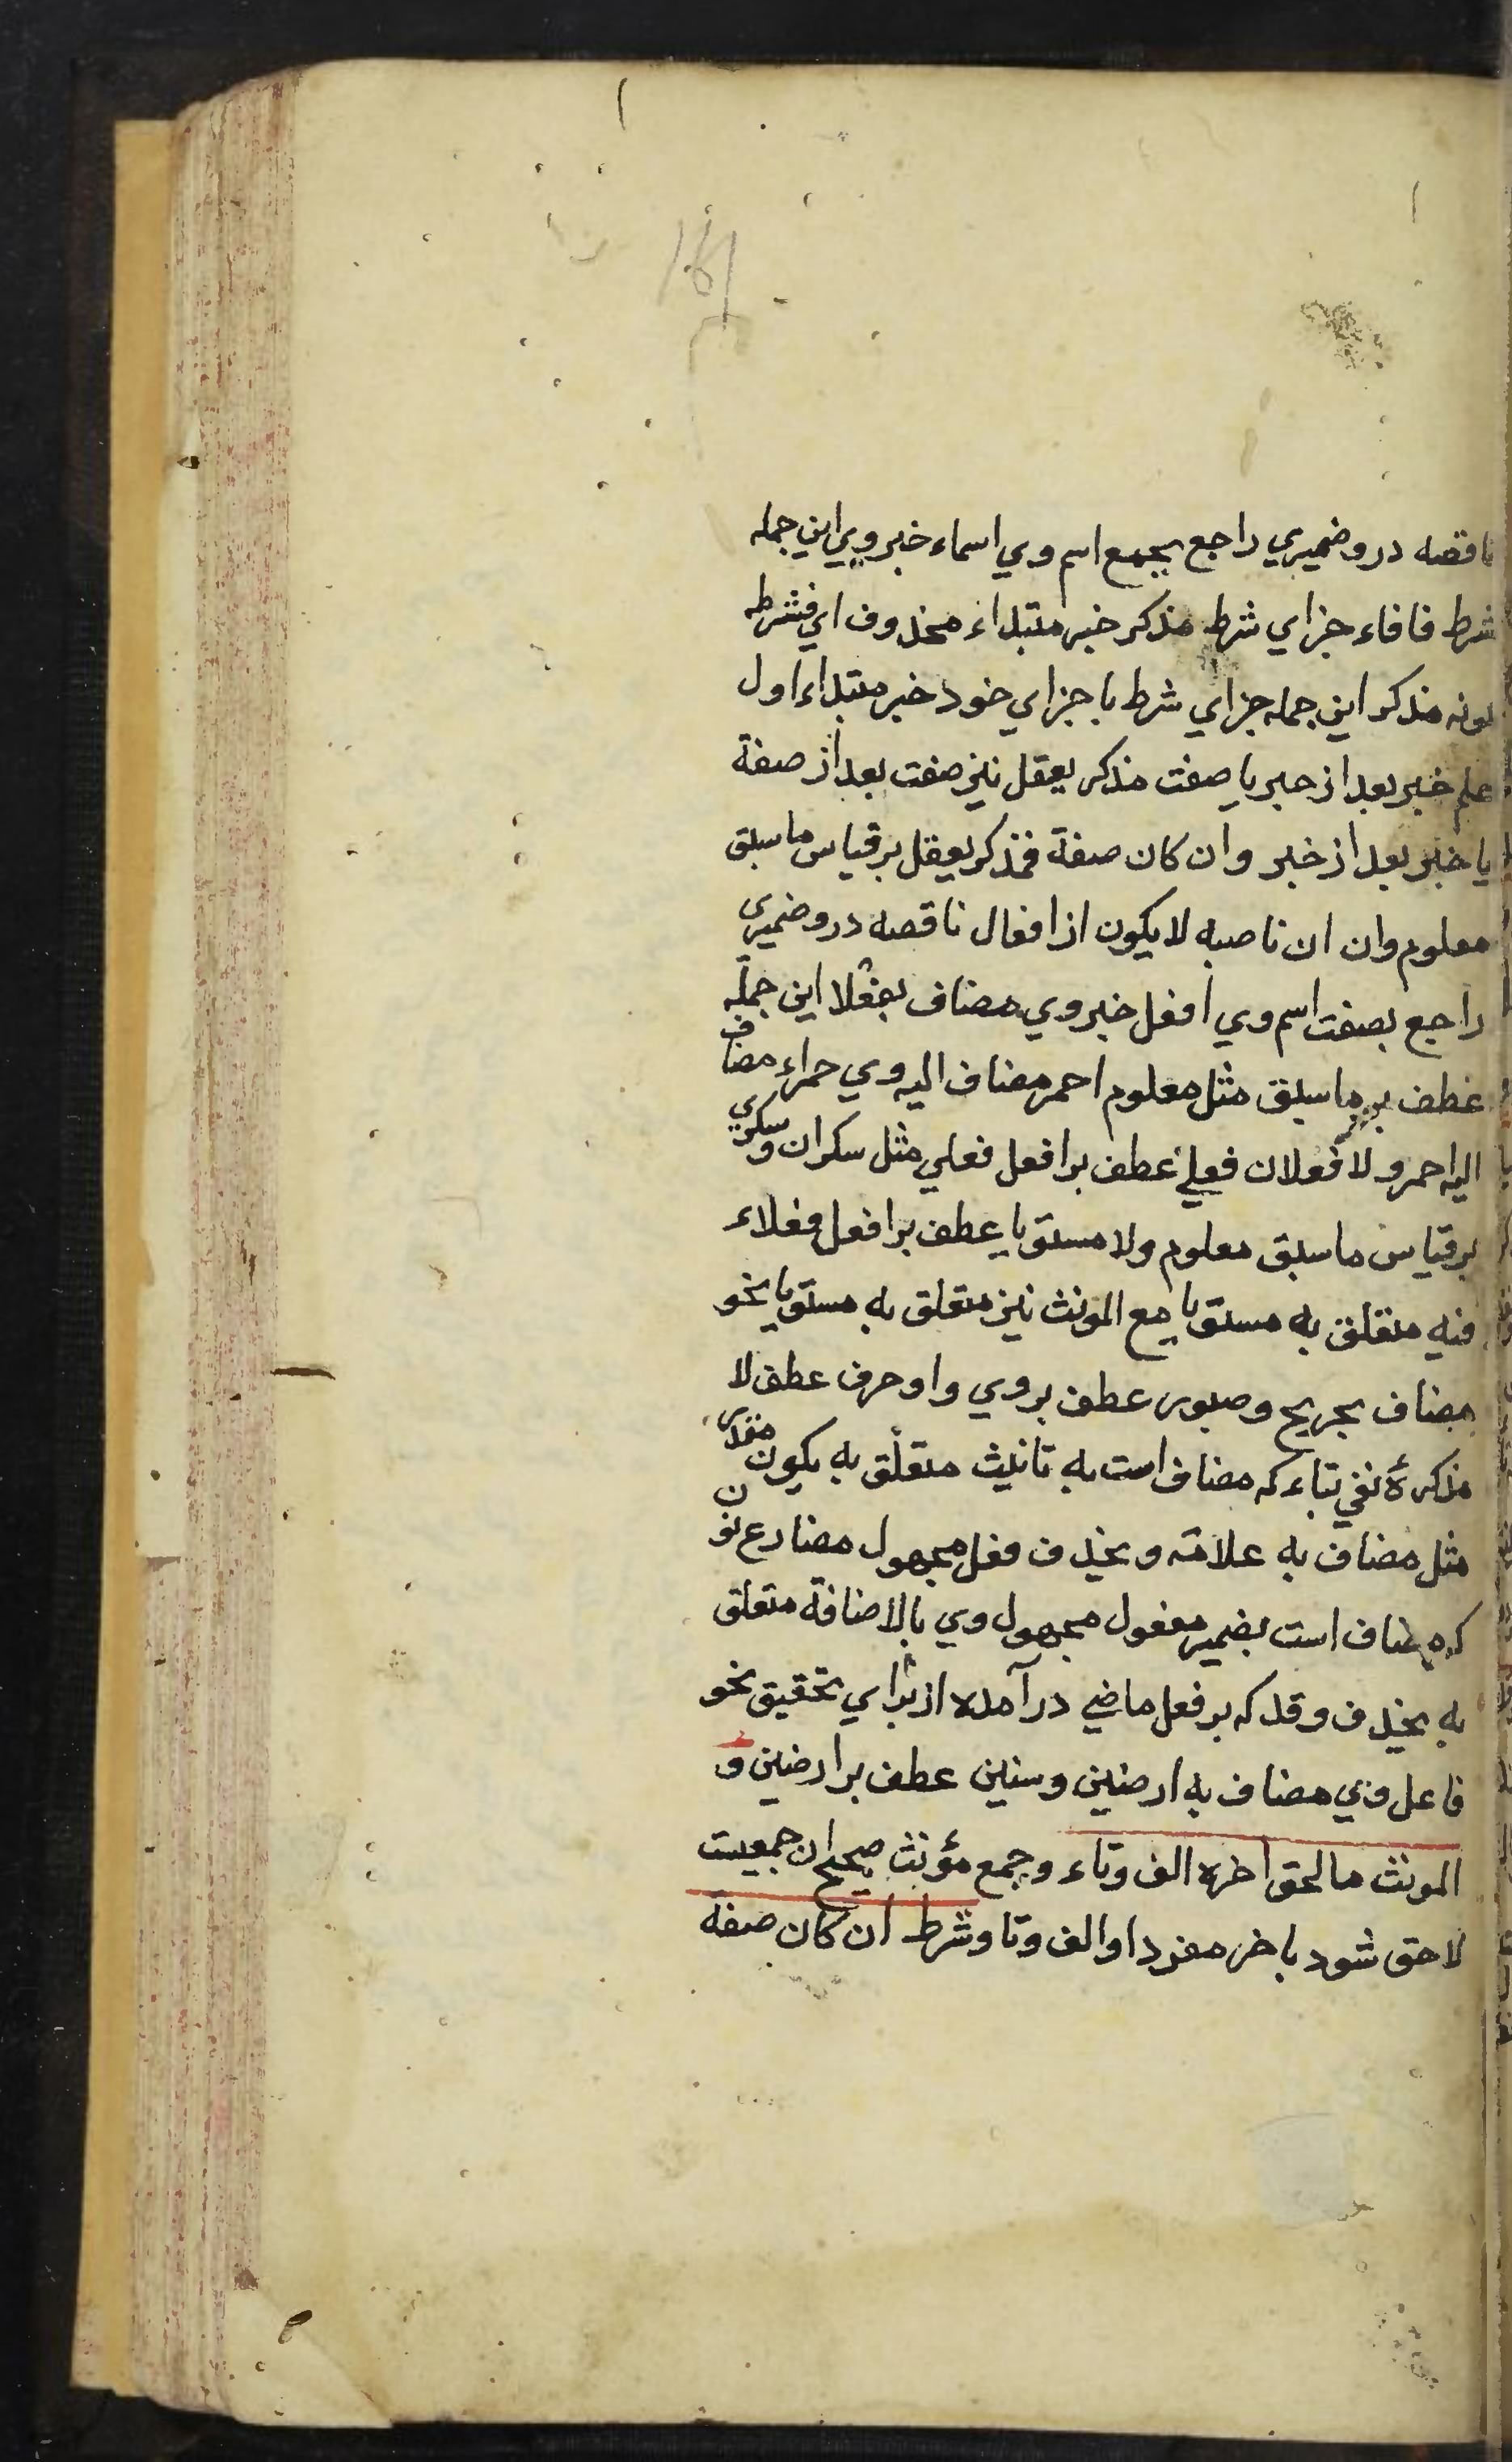 ناقصه درو ضميري راجع بجمع اسم وي اسماء خبر وي اين جمله
شرط فا فاء جزاي شرط مذكر خبر مبتداء محذوف اي فشرطه
كونه مذكر اين جمله جزاي شرط با جزاي خود خبر مبتداء اول
علم خبر بعد از خبر يا صفت مذكر يعقل نيز صفت بعد از صفة
يا خبر بعد از خبر وان كان صفة فمذكر يعقل بر قياس ما سبق
معلوم وان ان ناصبه لا يكون از افعال ناقصه درو ضميرى
راجع بصفت اسم وي افعل خبر وي مضاف بفعلا اين جمله
عطف بر ما سبق مثل معلوم احمر مضاف اليه وي حمراء مضاف
اليه احمر ولا فعلان فعلي عطف بر افعل فعلي مثل سكران وسكري
بر قياس ما سبق معلوم ولا مستويا عطف بر افعل فعلاء
فيه متعلق به مستويا مع المونث نيز متعلق به مستويا نحو
مضاف بجريح وصبور عطف بروي واو حرف عطف لا
مذكرۀ نفي بتاء كه مضاف است به تانيث متعلق به يكون مقدر
مثل مضاف به علامة و بحذف فعل مجهول مضارع نون
كه مضاف است بضمير مفعول مجهول وي بالاضافة متعلق
به بحذف وقد كه بر فعل ماضي در آمده از براي تحقيق نحو
فاعل وي مضاف به ارضين وسنين عطف بر ارضين و
المونث ما لحق اخره الف وتاء وجمع مؤنث صحيح ان جمعيست
لاحق شود باخر مفرد او الف وتا وشرط ان كان صفة